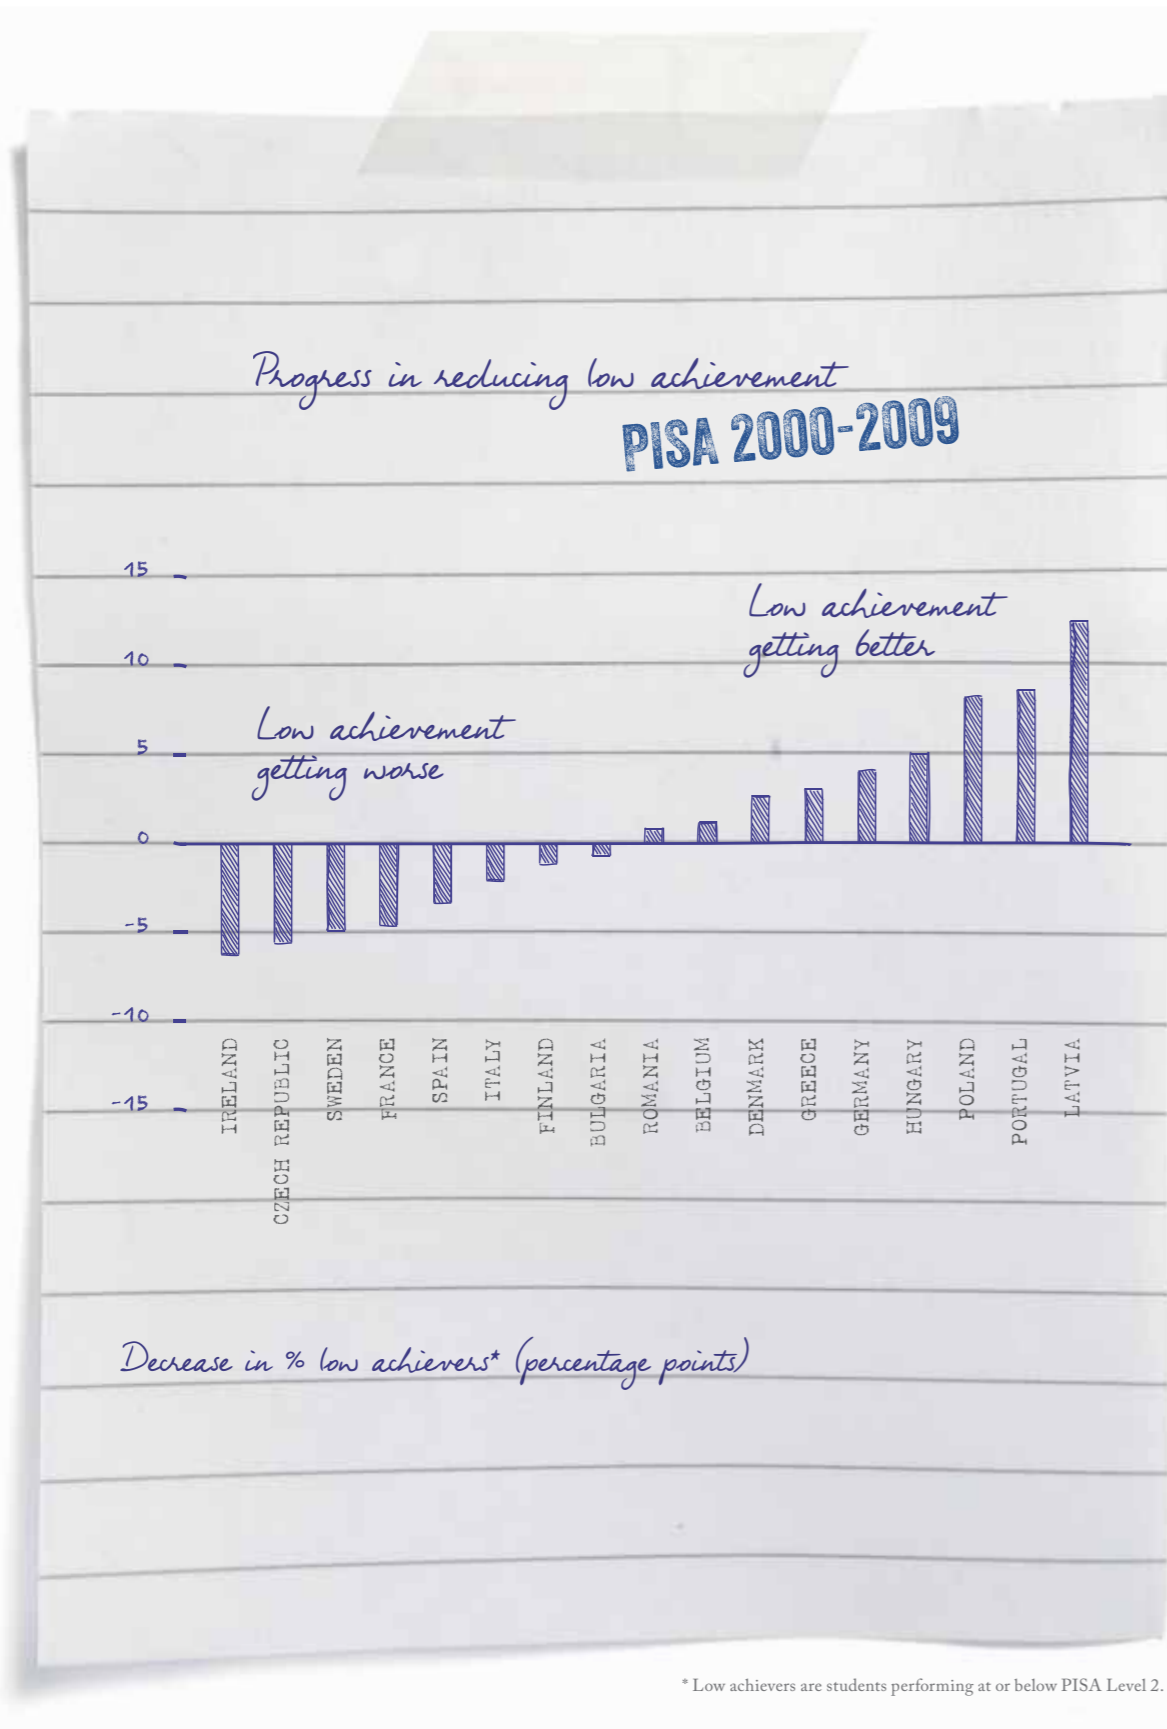 Progress in reducing low achievement
PISA 2000-2009
15
10
5
0
-5
-10
-15
Low achievement
getting better
Low achievement
getting worse
IRELAND
CZECH REPUBLIC
SWEDEN
FRANCE
SPAIN
ITALY
FINLAND
BULGARIA
ROMANIA
BELGIUM
DENMARK
GREECE
GERMANY
HUNGARY
POLAND
PORTUGAL
LATVIA
Decrease in % low achievers* (percentage points)
* Low achievers are students performing at or below PISA Level 2.